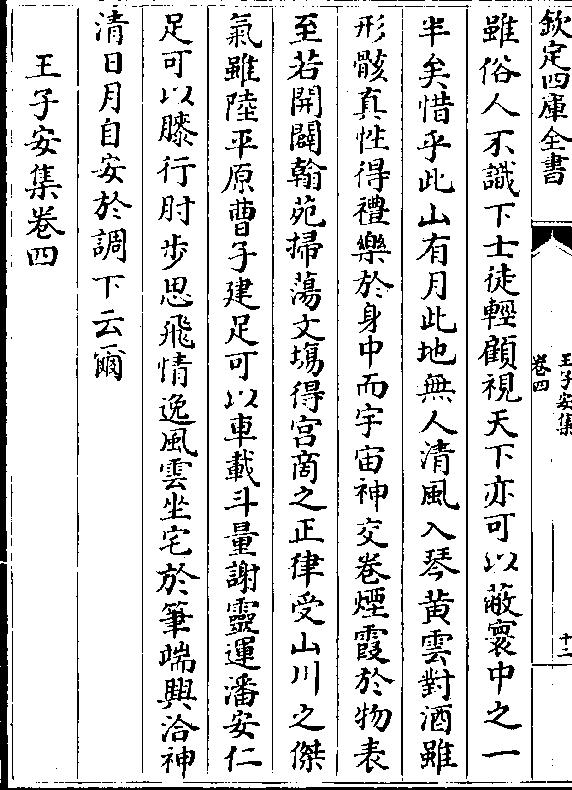 欽定四庫全書
王子安集
卷四
十二
雖俗人不識下士徒輕顧視天下亦可以蔽寰中之一
半矣惜乎此山有月此地無人清風入琴黄雲對酒雖
形骸真性得禮樂於身中而宇宙神交卷煙霞於物表
至若開闢翰苑掃蕩文塲得宫商之正律受山川之傑
氣雖陸平原曹子建足可以車載斗量謝靈運潘安仁
足可以膝行肘步思飛情逸風雲坐宅於筆端興洽神
清日月自安於調下云爾
王子安集卷四